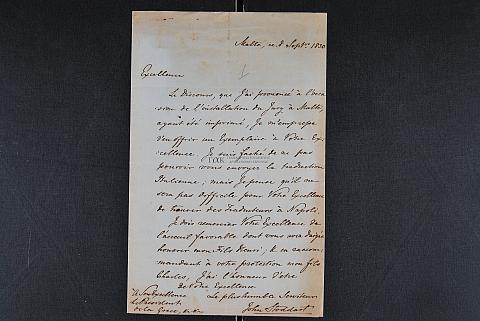 Malta, ce 8 Septre 1830
Excellence
Le Discours, que J'ai prononcé à l'occa
sion de l'installation du Jury à Malte,
ayant été imprimé, Je m'empresse
d'en offrir un Exemplaire à Votre Ex
cellence. Je suis fâché de ne pas
pouvoir vous envoyer la traduction
Italienne; mais Je pense qu'il ne
sera pas difficile pour Votre Excellence
de trouver des Traducteurs à Napoli.
Je dois remercier Votre Excellence de
l'accueil favorable dont vous avez daigné
honorer mon fils Henri, & en recom
mandant à votre protection mon fils
Charles, J'ai l'honneur d'être
de Votre Excellence
Le plus humble Serviteur
John Stoddart
à Son Excellence
le Président
de la Grèce, &c &c